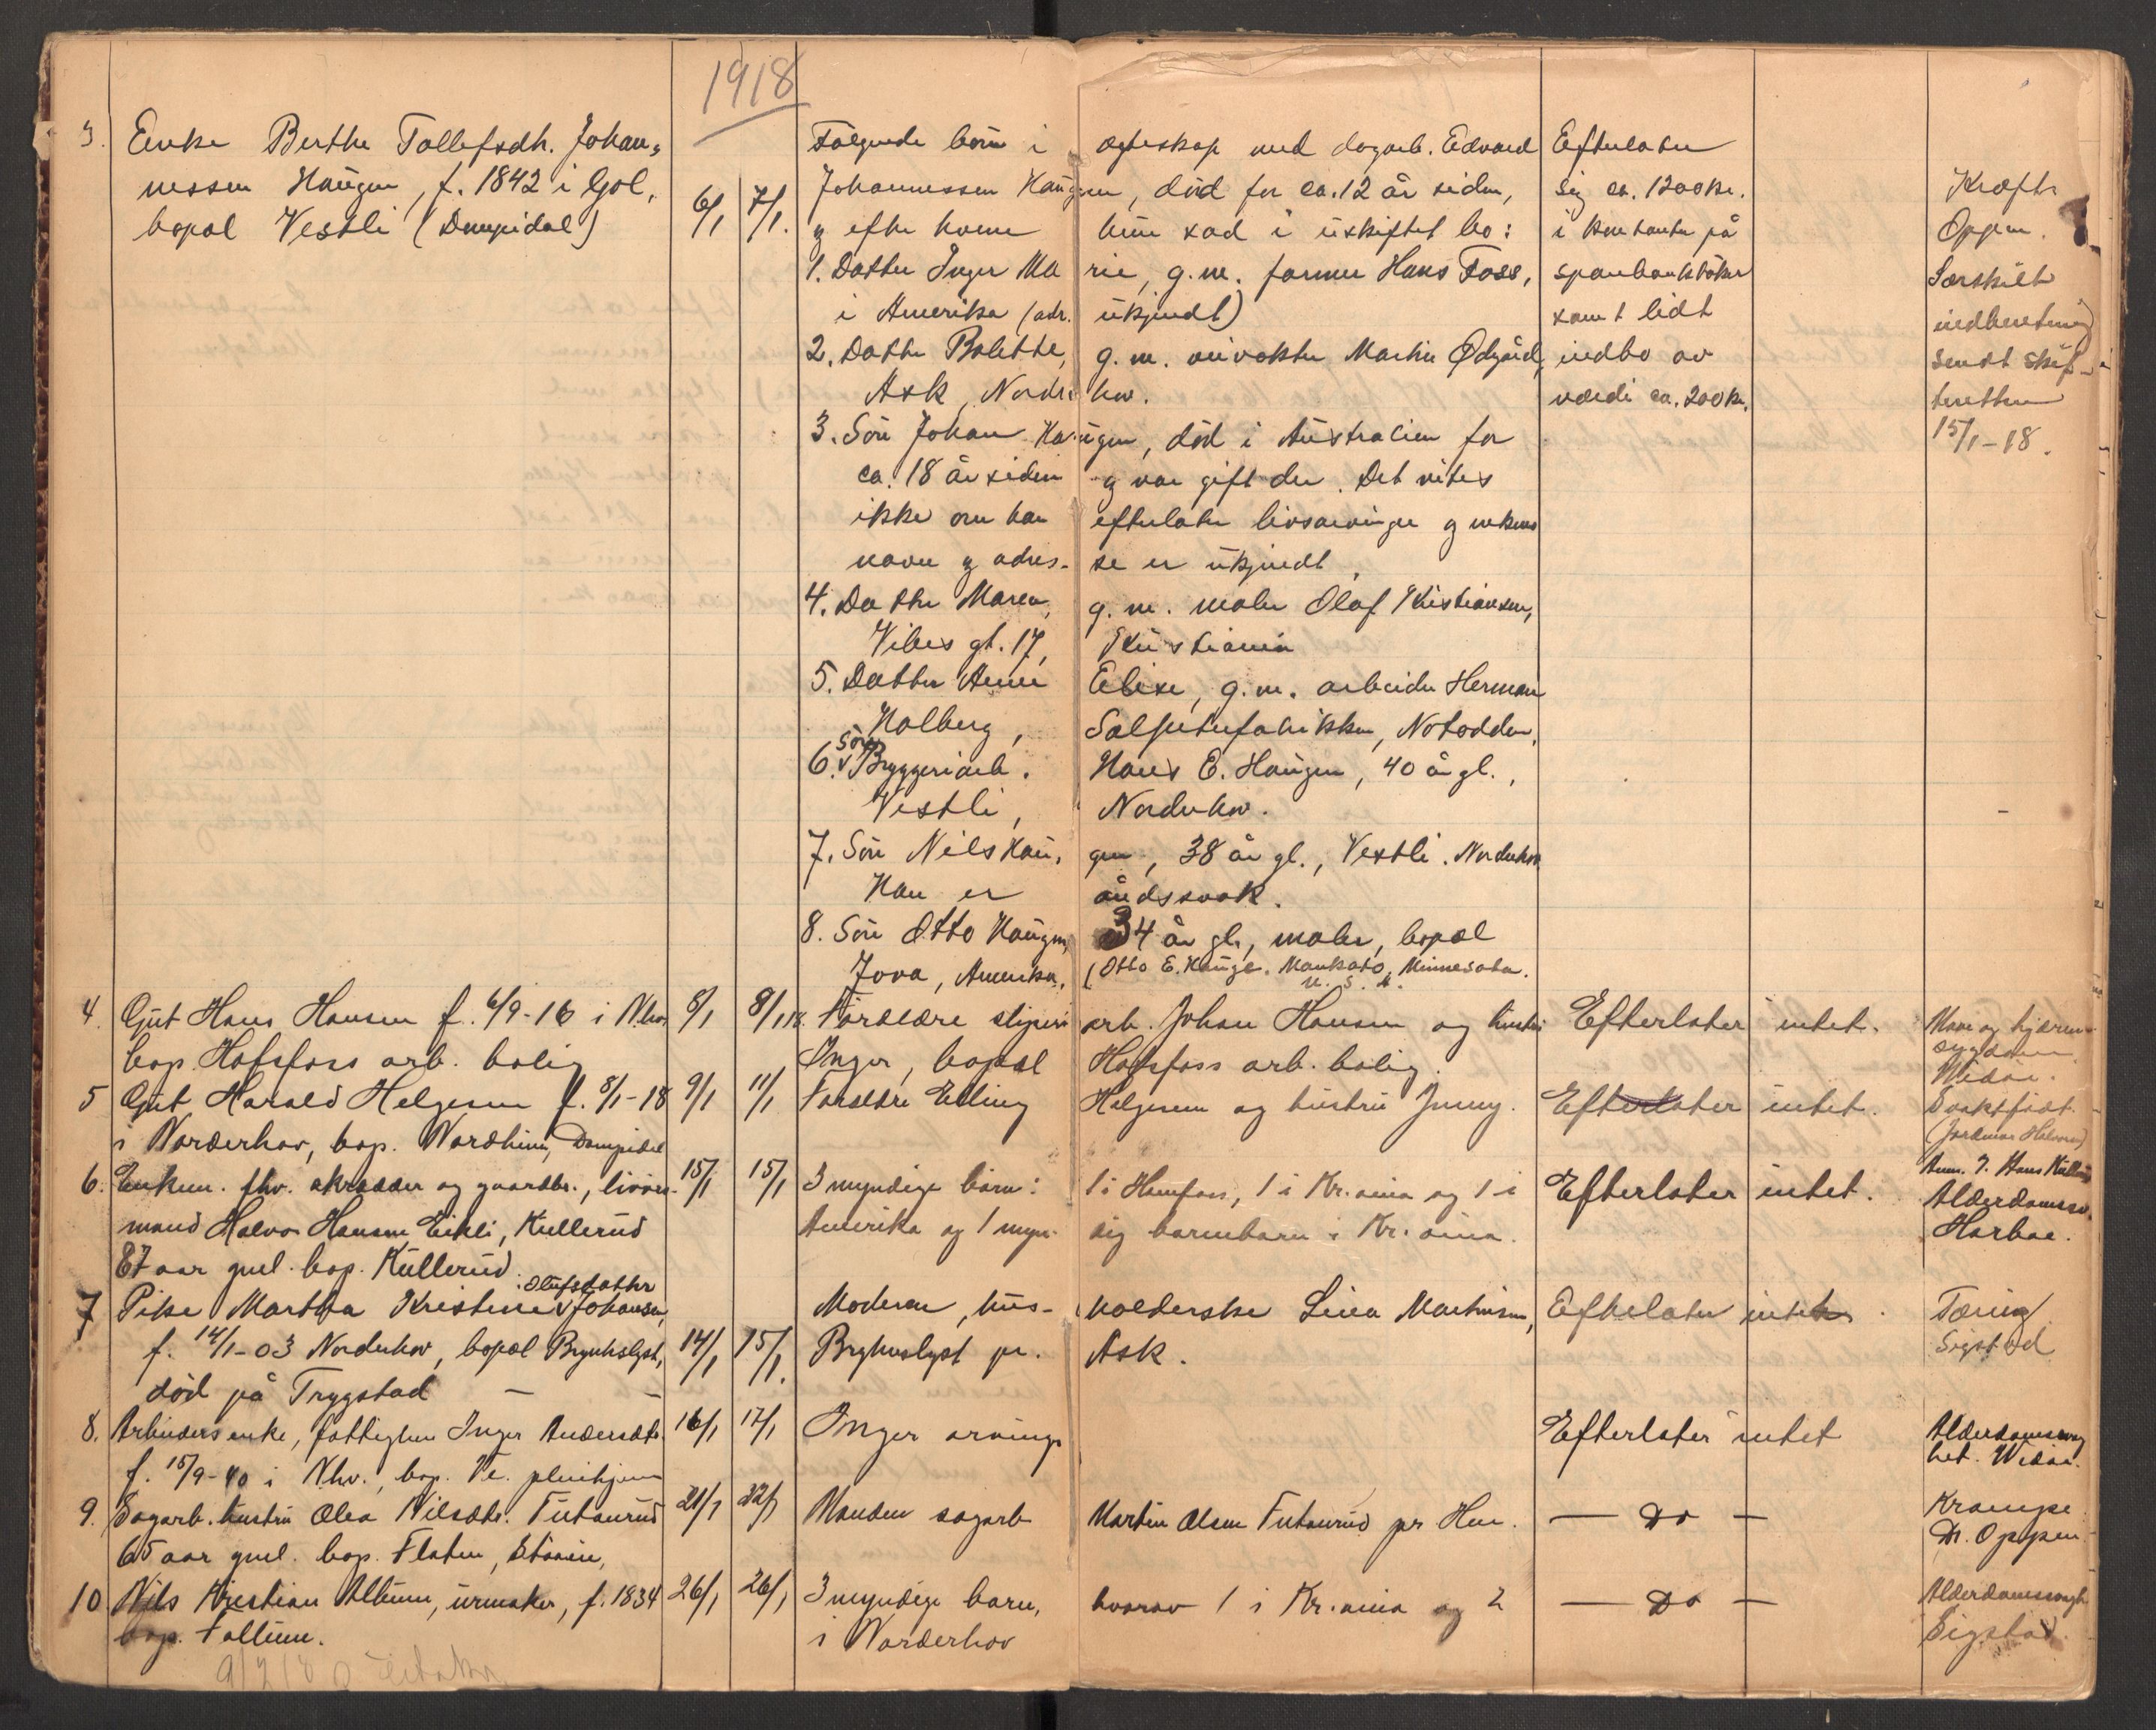 1918
3. Enke Berthe Tollefsdtr. Johan-
nessen Haugen, f. 1842 i Gol,
bopæl Vestli (Dampidal)
6/1 7/1.
Følgende børn i egteskap med dagarb. Edvard
Johannessen Haugen, død for ca. 12 år siden,
g efter hvem hun sad i uskiftet bo:
1. Datter Inger Marie, g.m. farmer Hans Foss,
i Amerika (adr. ukjendt)
2. Datter Bolette, g.m. veivokter Martin Ødegård,
Ask, Norderhov.
3. Søn Johan Haugen, død i Australien for
ca. 18 år siden g var gift der. Det vites
ikke om han efterlater livsarvinger g enkens
navn g adresse er ukjendt.
4. Datter Maren, g.m. maler Olaf Kristiansen,
Vibes gt. 17, Kristiania
5. Datter Anne Elise, g.m. arbeider Herman
Holberg, Salpeterfabrikken, Notodden.
6. Søn Bryggeriarb. Hans E. Haugen, 40 år gl.,
Vestli, Norderhov.
7. Søn Nils Haugen, 38 år gl., Vestli. Norderhov
Han er åndssvak.
8. Søn Otto Haugen, 34 år gl., maler, bopæl
Jova, Amerika, (Otto E. Hauge. Mankato, Minnesota.
U. S. A.
Efterlater
sig ca. 1200 kr.
i kontanter på
sparbankbøker
samt lidt
indbo av
værdi ca. 200 kr.
Kræft
Oppen.
Særskilt
indberetning
sendt skif-
teretten
15/1-18.
4. Gut Hans Hansen f. 6/9-16 i Nhov 8/1 8/1 18. Forældre sliperiarb. Johan Hansen og hustru Efterlater intet. Mave og hjerne-
sygdom
bop. Hofsfoss arb. bolig Inger, bopæl Hofsfoss arb. bolig. Widøe.
5 Gut Harald Helgesen f. 8/1-18 9/1 11/1 Forældre Elling Helgesen og hustru Jenny. Efterlater intet. Svaktfødt.
i Norderhov, bop. Nordhim, Dampidal (Jordmor Halvorsen)
6. Enkem. fhv. skrædder og gaardbr., livøres- 15/1 15/1 3 myndige børn: 1 i Hønefoss, 1 i Kr.ania og 1 i Efterlater intet. Anm. J. Hans Küllerud
mand Halvor Hansen Eikli, Kullerud Amerika og 1 myndig barnebarn i Kr.ania. Alderdomssv.
Harboe.
87 aar gml. bop. Küllerud.
7 Pike Martha Kristine Olufsdatter Johansen, Moderen, husholderske Lina Martinsen, Efterlater intet. Tæring
f. 14/1-03 Norderhov, bopæl Brynhslyst, 14/1 15/1. Brghuslyst pr. Ask. Sigstad
død på Trygstad
8. Arbeidersenke, fattiglem Inger Andersdtr. 16/1 17/1 Ingen arvinger Efterlater intet Alderdomssvag
het. Widøe.
f. 15/9-40 i Nhv., bop. Ve. pleiehjem
9. Sagarb. hustru Olea Nilsdtr. Tutanrud 21/1 22/1 Manden sagarb Martin Olsen Tutanrud pr Hen. — Do — Krampe
Dr. Oppen
65 aar gml. bop. Flaten, Støveren,
10 Nils Kristian Allum, urmaker, f. 1834 26/1 26/1 3 myndige barn, hvorav 1 i Kr.ania og 2 — Do — Alderdomssvagh.
bop. Follum. i Norderhov Sigstad.